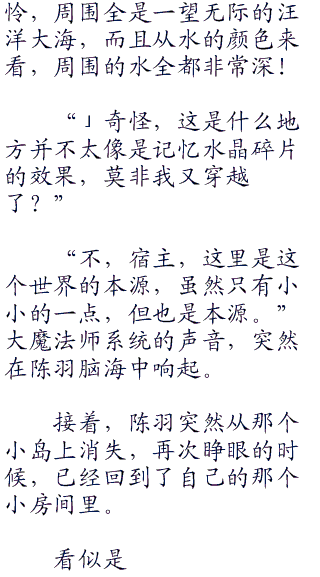 怜，周围全是一望无际的汪
洋大海，而且从水的颜色来
看，周围的水全都非常深！
“」奇怪，这是什么地
方并不太像是记忆水晶碎片
的效果，莫非我又穿越
了？”
“不，宿主，这里是这
个世界的本源，虽然只有小
小的一点，但也是本源。”
大魔法师系统的声音，突然
在陈羽脑海中响起。
接着，陈羽突然从那个
小岛上消失，再次睁眼的时
候，已经回到了自己的那个
小房间里。
看似是